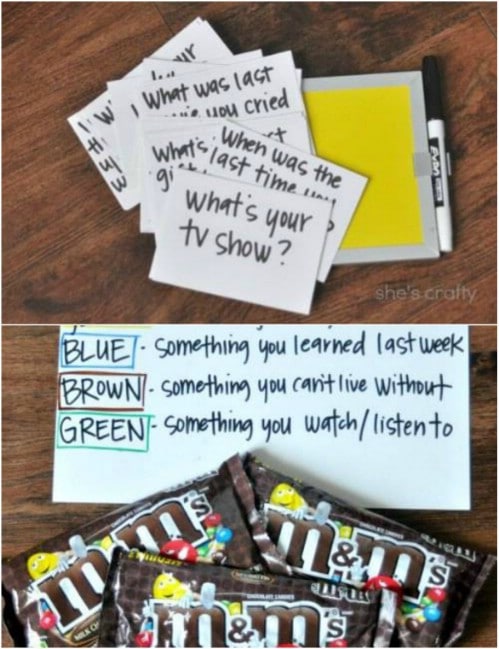 What was last
you cried
What's
When was the
last time you
What's your
tv show?
she's crafty
BLUE - Something you learned last week
BROWN - Something you can't live without
GREEN - Something you watch/listen to
m&m's
m&m's
m&m's